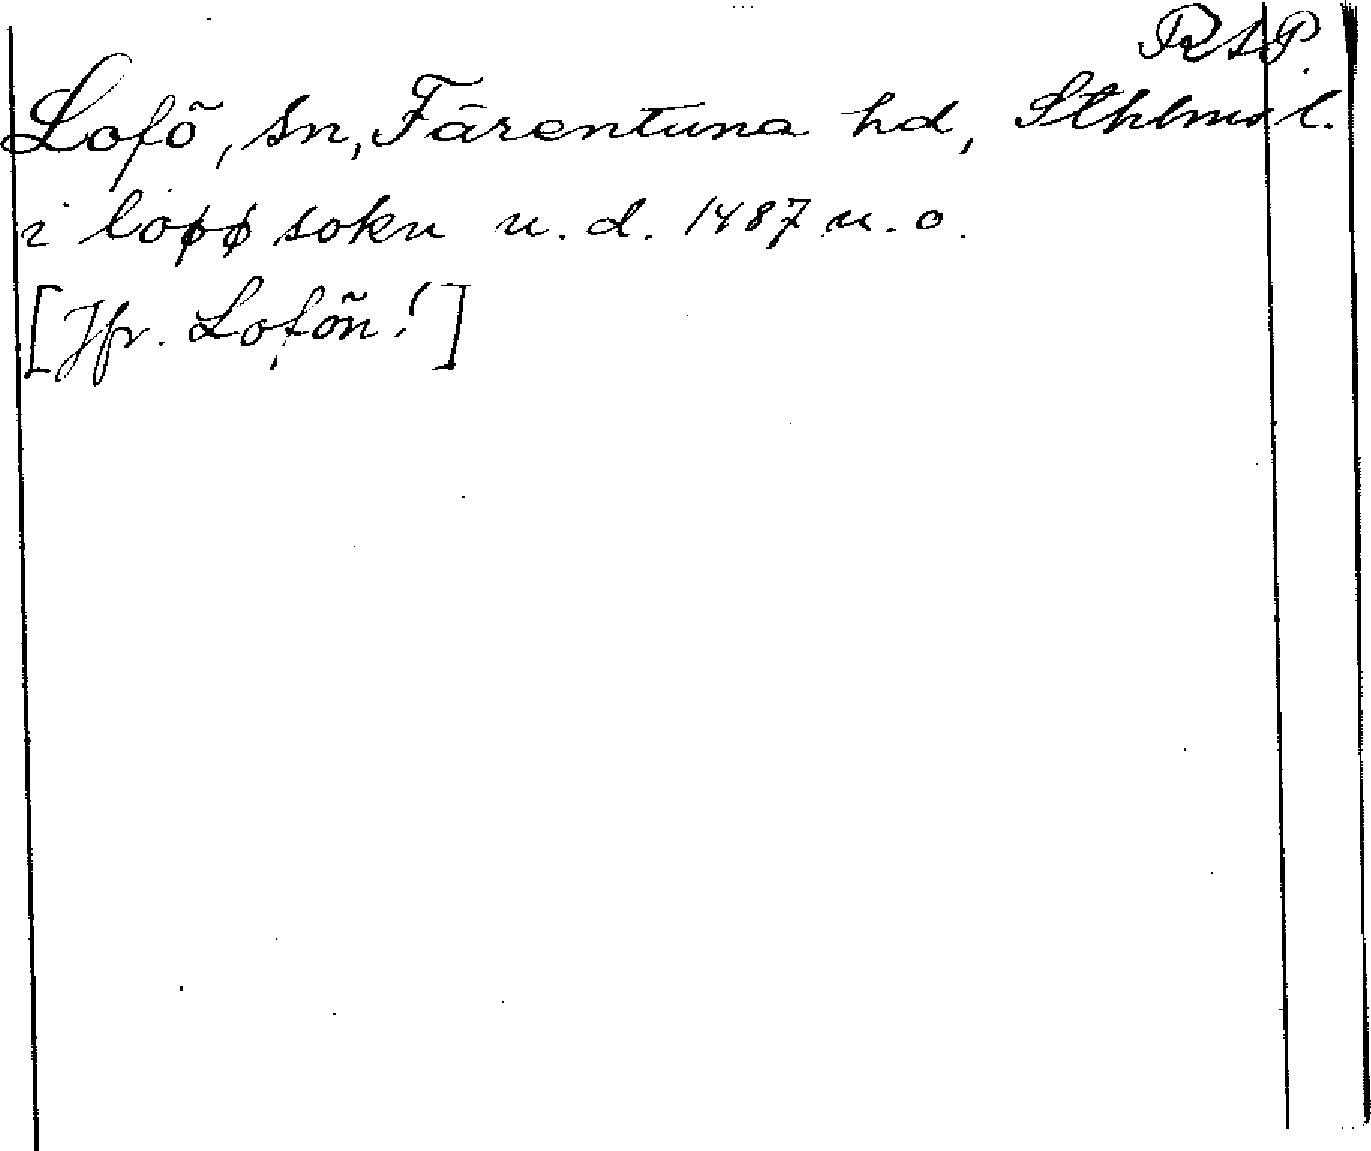 RAP.
Lofö, sn, Färentuna hd, Sthlms l.
i loøø sokn u. d. 1487 u. o.
[Jfr. Lofön!]